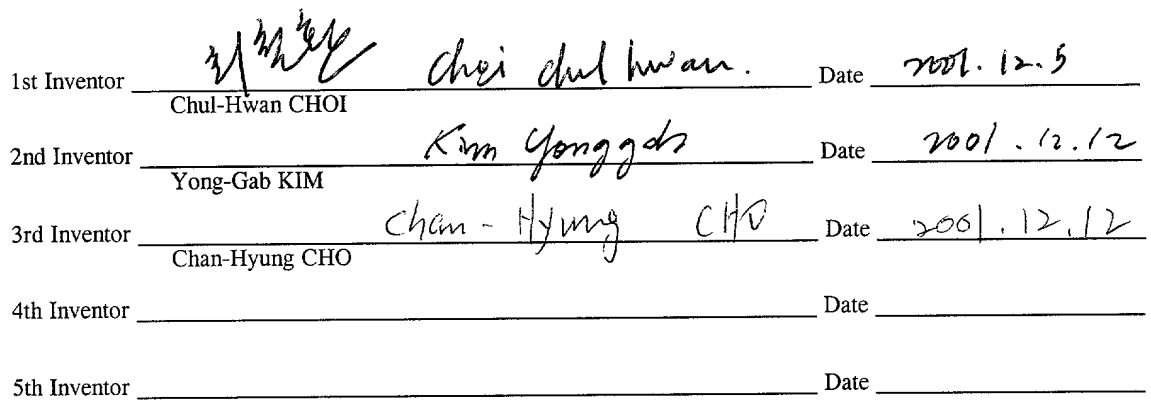 1st Inventor 최철환 choi chul hwan. Date 2001.12.5
Chul-Hwan CHOI
2nd Inventor Kim Yonggab Date 2001.12.12
Yong-Gab KIM
3rd Inventor Chan-Hyung CHO Date 2001.12.12
Chan-Hyung CHO
4th Inventor Date
5th Inventor Date